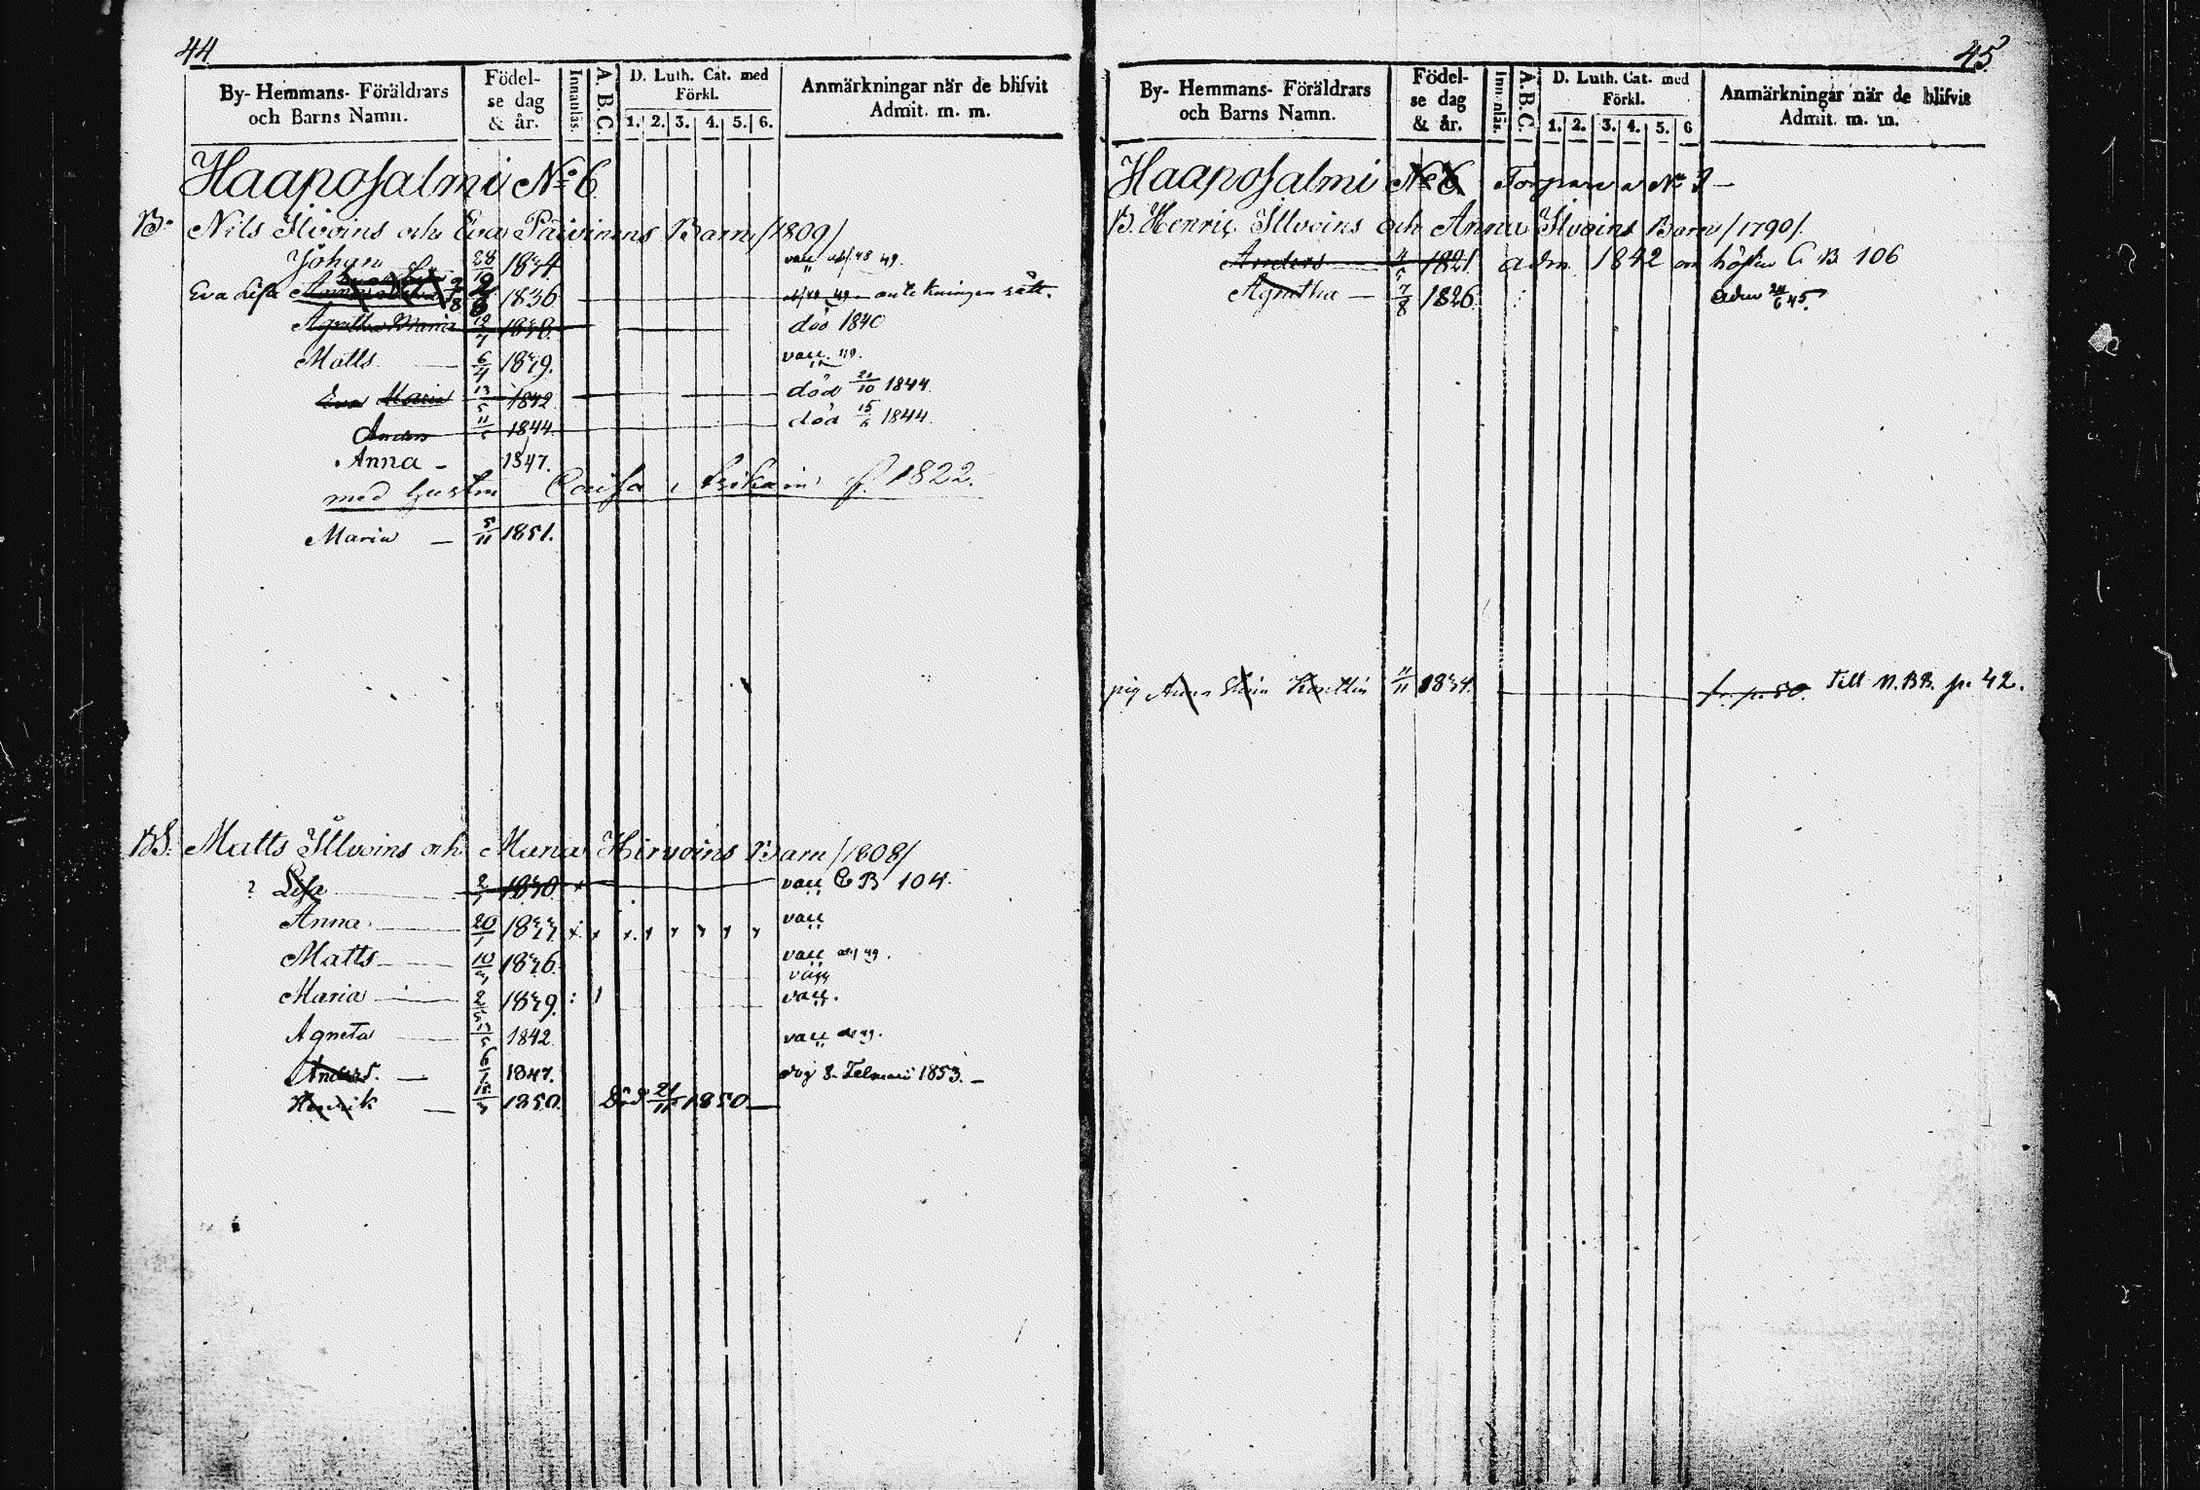 44
By- Hemmans- Föräldrars och Barns Namn.
Födelse dag & år.
Innanläs.
A. B. C.
D. Luth. Cat. med Förkl.
1. 2. 3. 4. 5. 6.
Anmärkningar när de blifvit Admit. m. m.
Haaposalmi No 6
B. Nils Ilvoins och Eva Päivinens Barn /1809/
Johan 28/12 1834 vacc 48 49.
Eva Lisa 1836 anteckningen rätt.
Agnetha Maria 12/7 1838. död 1840
Matts 6/4 1839. vacc. 49.
Eva Maria 13/5 1842 död 21/10 1844.
Anders 11/5 1844. död 15/6 1844.
Anna - 1847.
med hustru f. 1822.
Maria 5/11 1851.
BS. Matts Illvoins och Maria Hirvoins Barn /1808/
? Lisa 2/1 1830. x vacc C B 104.
Anna 20/1 1833. vacc
Matts 10/3 1836. vacc 49.
Maria 2/5 1839. vacc.
Agneta 1842 vacc 49.
Anders. 6/1 1847. dog 8. Februari 1853.
Henrik 15/3 1850. Död 21/11 1850
45
By- Hemmans- Föräldrars och Barns Namn.
Födelse dag & år.
Innanläs.
A. B. C.
D. Luth. Cat. med Förkl.
1. 2. 3. 4. 5. 6
Anmärkningar när de blifvit Admit. m. m.
Haaposalmi No 6 Torpare a No 3
B. Henric Illvoins och Anna Ilvoins Barn /1790/.
Anders 4/5 1821 adm 1842 om hösten C B 106
Agnetha 7/8 1826. adm 24/6 45.
pig Anna 11/11 1834. fr. p. 50. Till N. BB. p. 42.